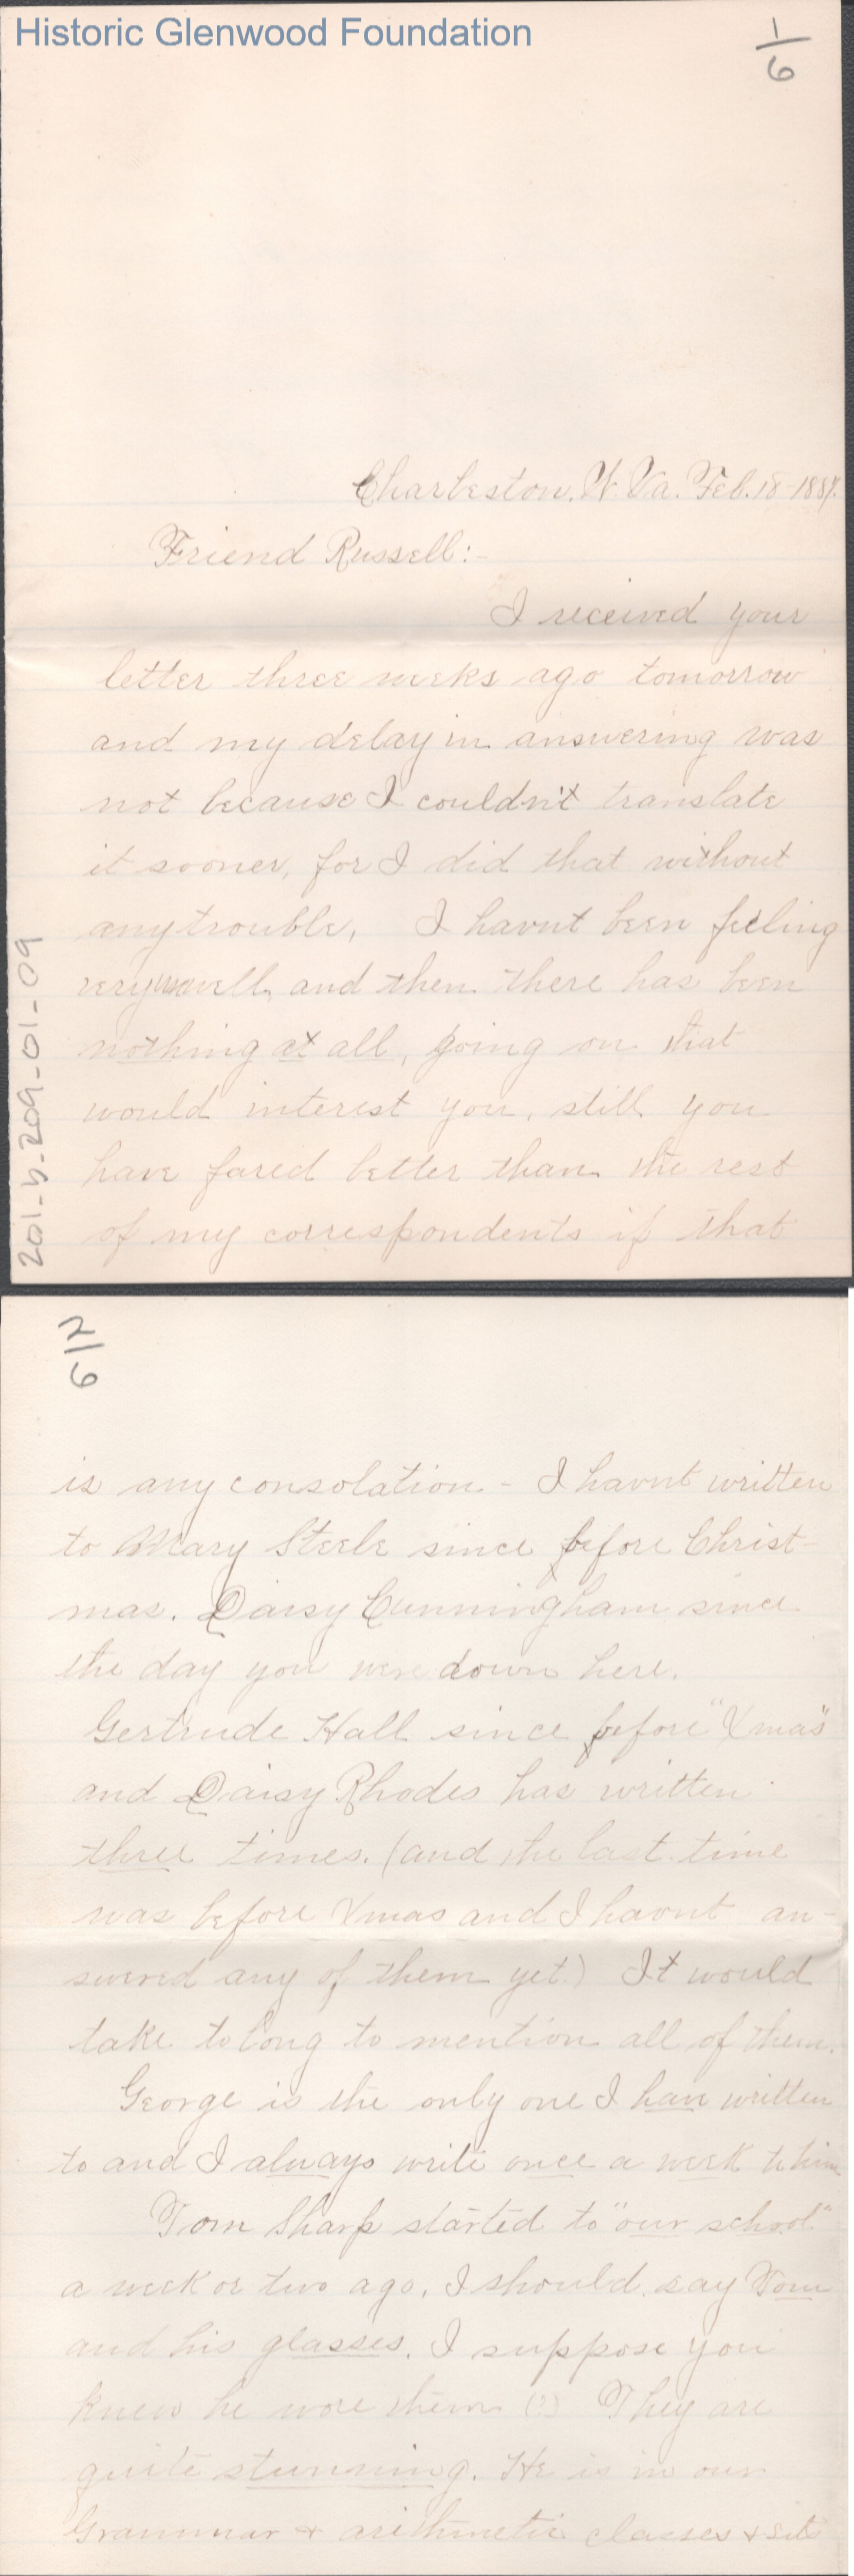 Historic Glenwood Foundation
1/6
Charleston, W. Va. Feb. 18-1887.
Friend Russell:-
I received your
letter three weeks ago tomorrow
and my delay in answering was
not because I couldn't translate
it sooner, for I did that without
any trouble, I havnt been feeling
very well, and then there has been
nothing at all, going on that
would interest you, still you
have fared better than the rest
of my correspondents if that
201-b-209-01-09
2/6
is any consolation - I havnt written
to Mary Steele since before Christ-
mas. Daisy Cunningham since
the day you were down here.
Gertrude Hall since before "Xmas"
and Daisy Rhodes has written
three times. (and the last time
was before Xmas and I havnt an-
swered any of them yet.) It would
take to long to mention all of them.
George is the only one I have written
to and I always write once a week to him
Tom Sharp started to "our school"
a week or two ago, I should say Tom
and his glasses. I suppose you
knew he wore them (?) They are
quite stunning. He is in our
Grammar & arithmetic classes & sits